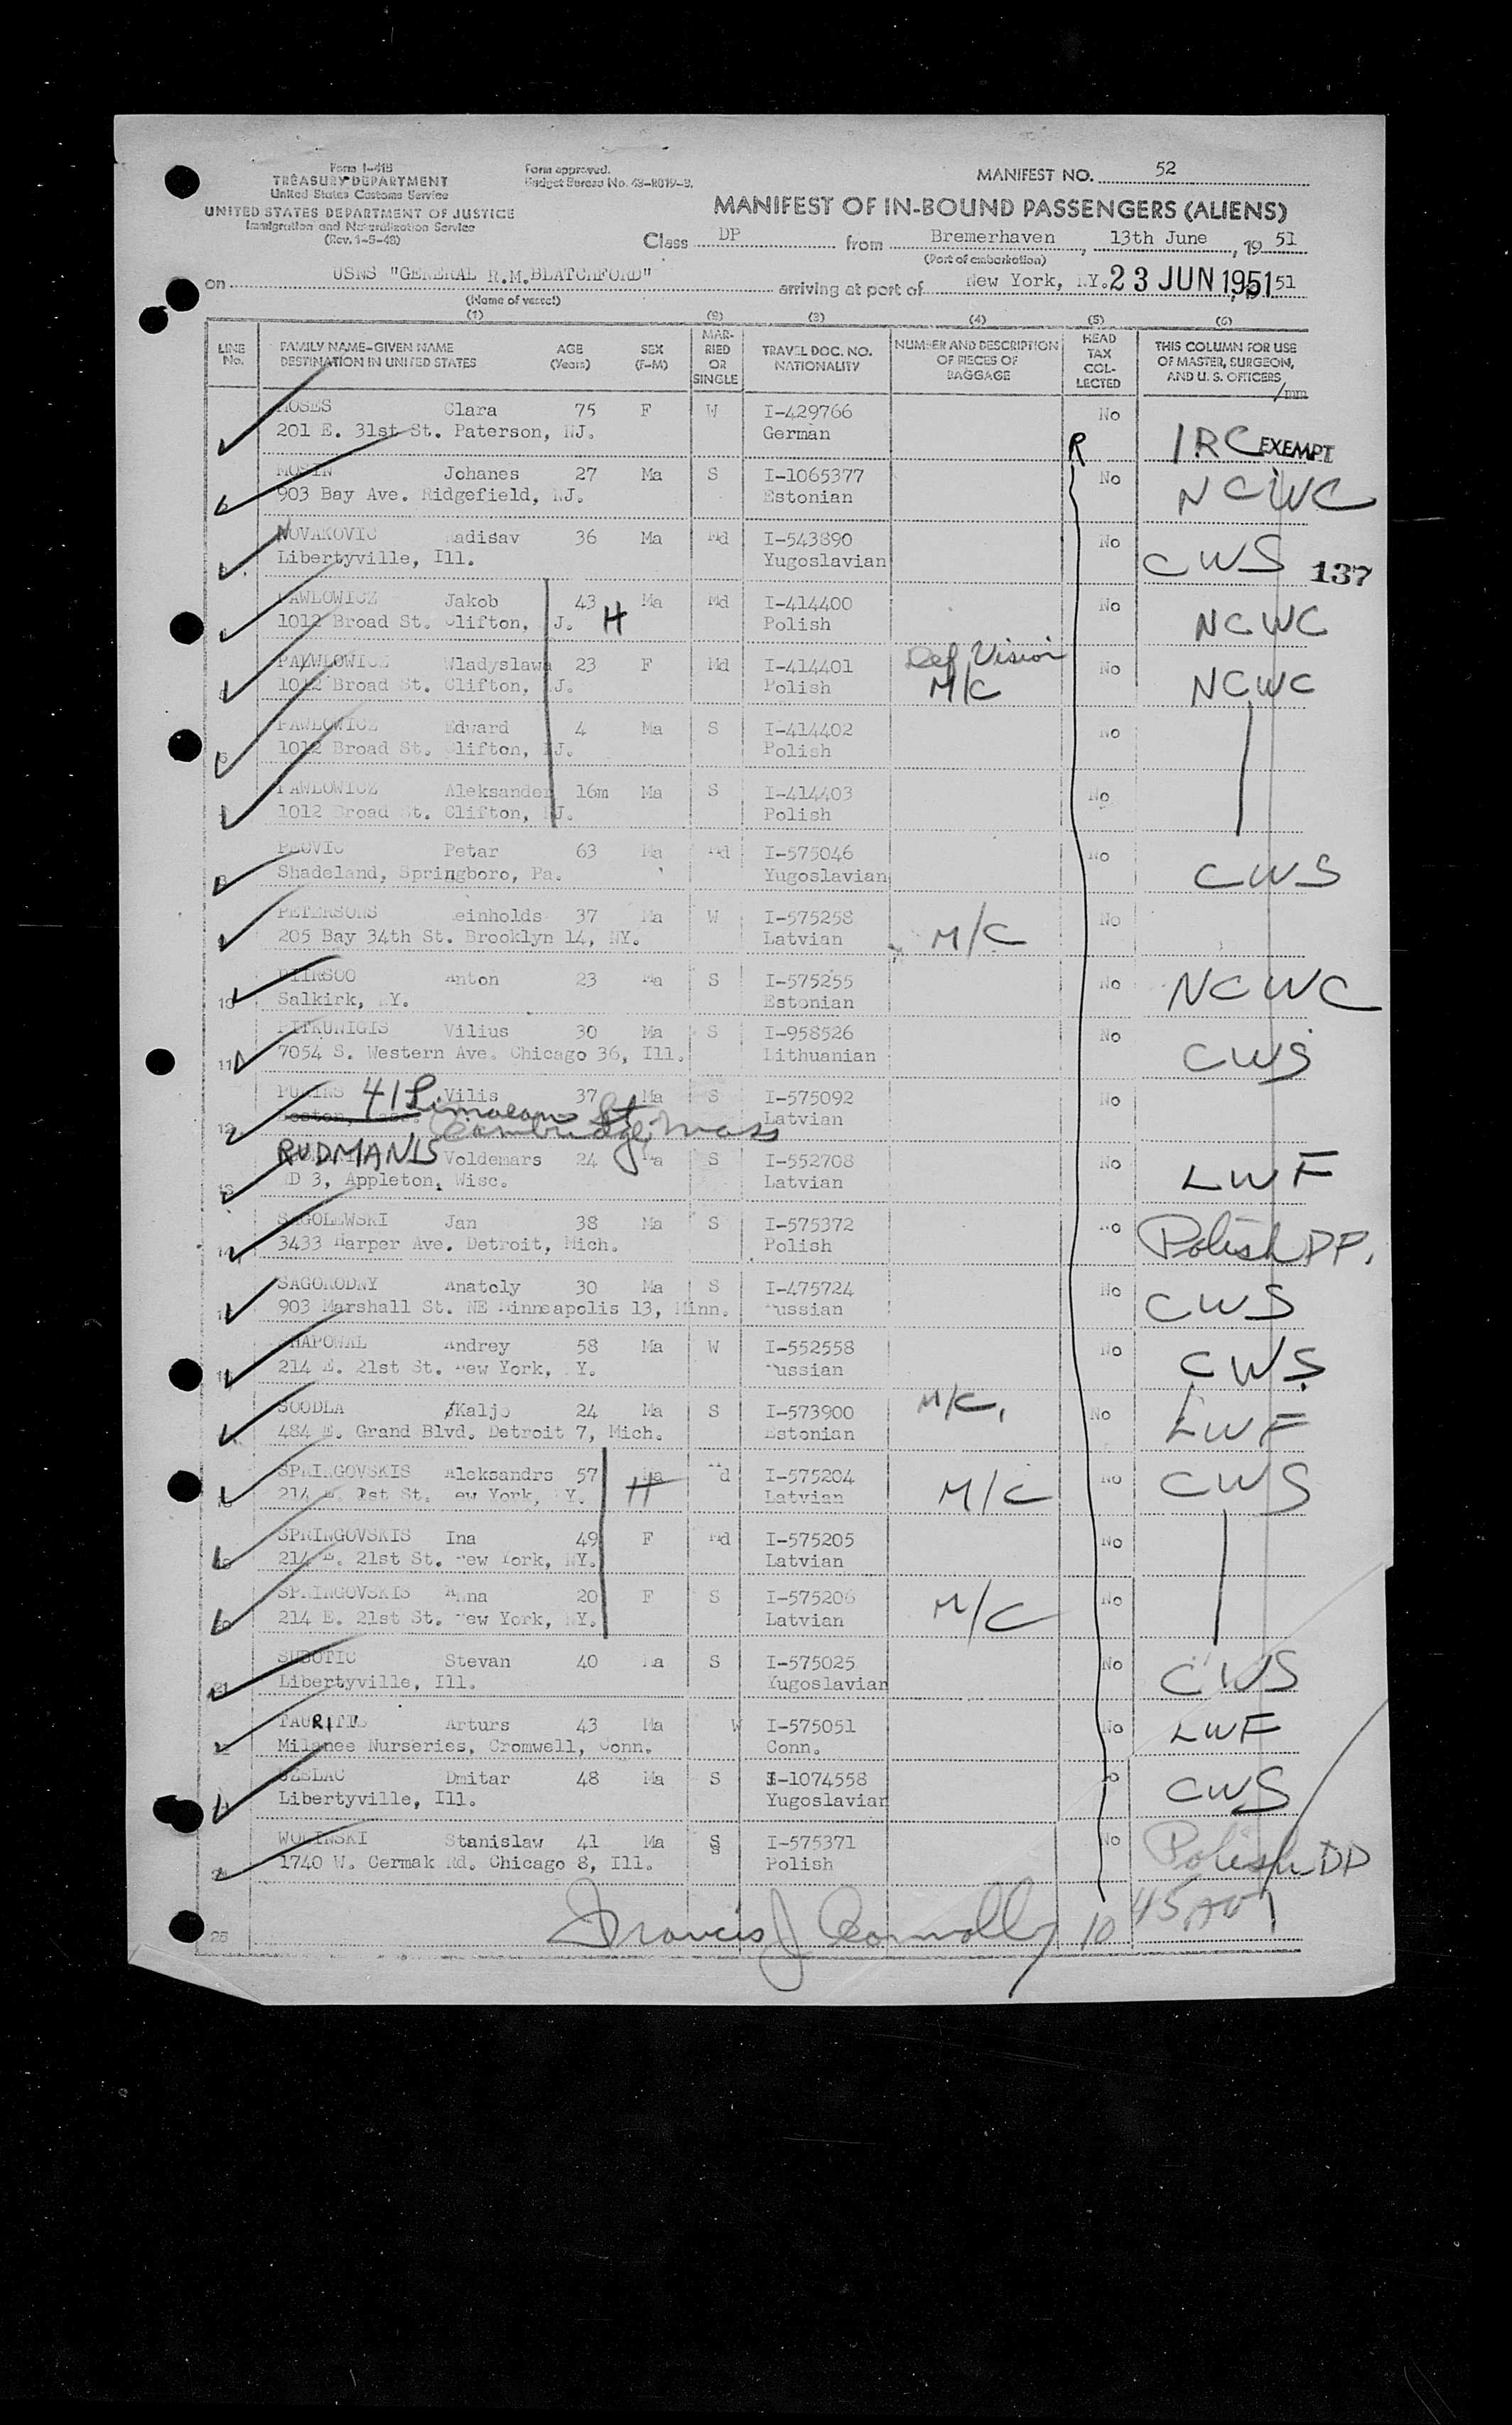 Form I-418
TREASURY DEPARTMENT
United States Customs Service
UNITED STATES DEPARTMENT OF JUSTICE
Immigration and Naturalization Service
(Rev. 1-5-48)
Form approved.
Budget Bureau No. 43-R019-3.
MANIFEST NO. 52
MANIFEST OF IN-BOUND PASSENGERS (ALIENS)
Class DP from Bremerhaven, 13th June, 19 51
(Port of embarkation)
on USNS "GENERAL R.M.BLATCHFORD" arriving at port of New York, NY. 23 JUN 1951 51
(Name of vessel)
(1) (2) (3) (4) (5) (6)
LINE No. FAMILY NAME-GIVEN NAME DESTINATION IN UNITED STATES AGE (Years) SEX (F-M) MARRIED OR SINGLE TRAVEL DOC. NO. NATIONALITY NUMBER AND DESCRIPTION OF PIECES OF BAGGAGE HEAD TAX COLLECTED THIS COLUMN FOR USE OF MASTER, SURGEON, AND U. S. OFFICERS
/mm
MOSES Clara 75 F W I-429766 No
201 E. 31st St. Paterson, NJ. German R IRC EXEMPT
MOSIN Johanes 27 Ma S I-1065377 No
903 Bay Ave. Ridgefield, NJ. Estonian NCWC
NOVAKOVIC Radisav 36 Ma Md I-543890 No
Libertyville, Ill. Yugoslavian CWS 137
PAWLOWICZ Jakob 43 Ma Md I-414400 No
1012 Broad St. Clifton, J. H Polish NCWC
PAWLOWICZ Wladyslawa 23 F Md I-414401 Def Vision No
1012 Broad St. Clifton, J. Polish M/C NCWC
6 PAWLOWICZ Edward 4 Ma S I-414402 No
1012 Broad St. Clifton, NJ. Polish
PAWLOWICZ Aleksander 16m Ma S I-414403 No
1012 Broad St. Clifton, NJ. Polish
PEOVIC Petar 63 Ma Md I-575046 No
Shadeland, Springboro, Pa. Yugoslavian CWS
PETERSONS Reinholds 37 Ma W I-575258 No
205 Bay 34th St. Brooklyn 14, NY. Latvian M/C
PIIRSOO Anton 23 Ma S I-575255 No NCWC
10 Salkirk, NY. Estonian
PITKUNIGIS Vilius 30 Ma S I-958526 No
11 7054 S. Western Ave. Chicago 36, Ill. Lithuanian CWS
41 Vilis 37 Ma S I-575092 No
12 St Cambridge, Mass Latvian
RUDMANIS Voldemars 24 Ma S I-552708 No LWF
13 RD 3, Appleton, Wisc. Latvian
SAGOLEWSKI Jan 38 Ma S I-575372 No Polish DP.
14 3433 Harper Ave. Detroit, Mich. Polish
SAGORODNY Anatoly 30 Ma S I-475724 No
903 Marshall St. NE Minneapolis 13, Minn. Russian CWS
SHAPOWAL Andrey 58 Ma W I-552558 No
214 E. 21st St. New York, Y. Russian CWS
SOODLA Kaljo 24 Ma S I-573900 M/C, No
484 E. Grand Blvd. Detroit 7, Mich. Estonian LWF
SPRINGOVSKIS Aleksandrs 57 Ma Md I-575204 No CWS
214 E. 21st St. New York, Y. H Latvian M/C
SPRINGOVSKIS Ina 49 F Md I-575205 No
214 E. 21st St. New York, NY. Latvian
SPRINGOVSKIS Anna 20 F S I-575206 No
214 E. 21st St. New York, NY. Latvian M/C
SUBOTIC Stevan 40 Ma S I-575025 No
21 Libertyville, Ill. Yugoslavian CWS
TAURITIS Arturs 43 Ma W I-575051 No LWF
Milanee Nurseries, Cromwell, Conn. Conn.
UZELAC Dmitar 48 Ma S I-1074558 No
Libertyville, Ill. Yugoslavian CWS
WOLINSKI Stanislaw 41 Ma S I-575371 No
1740 W. Cermak Rd. Chicago 8, Ill. Polish Polish DP
25 Francis J Connolly 10 45